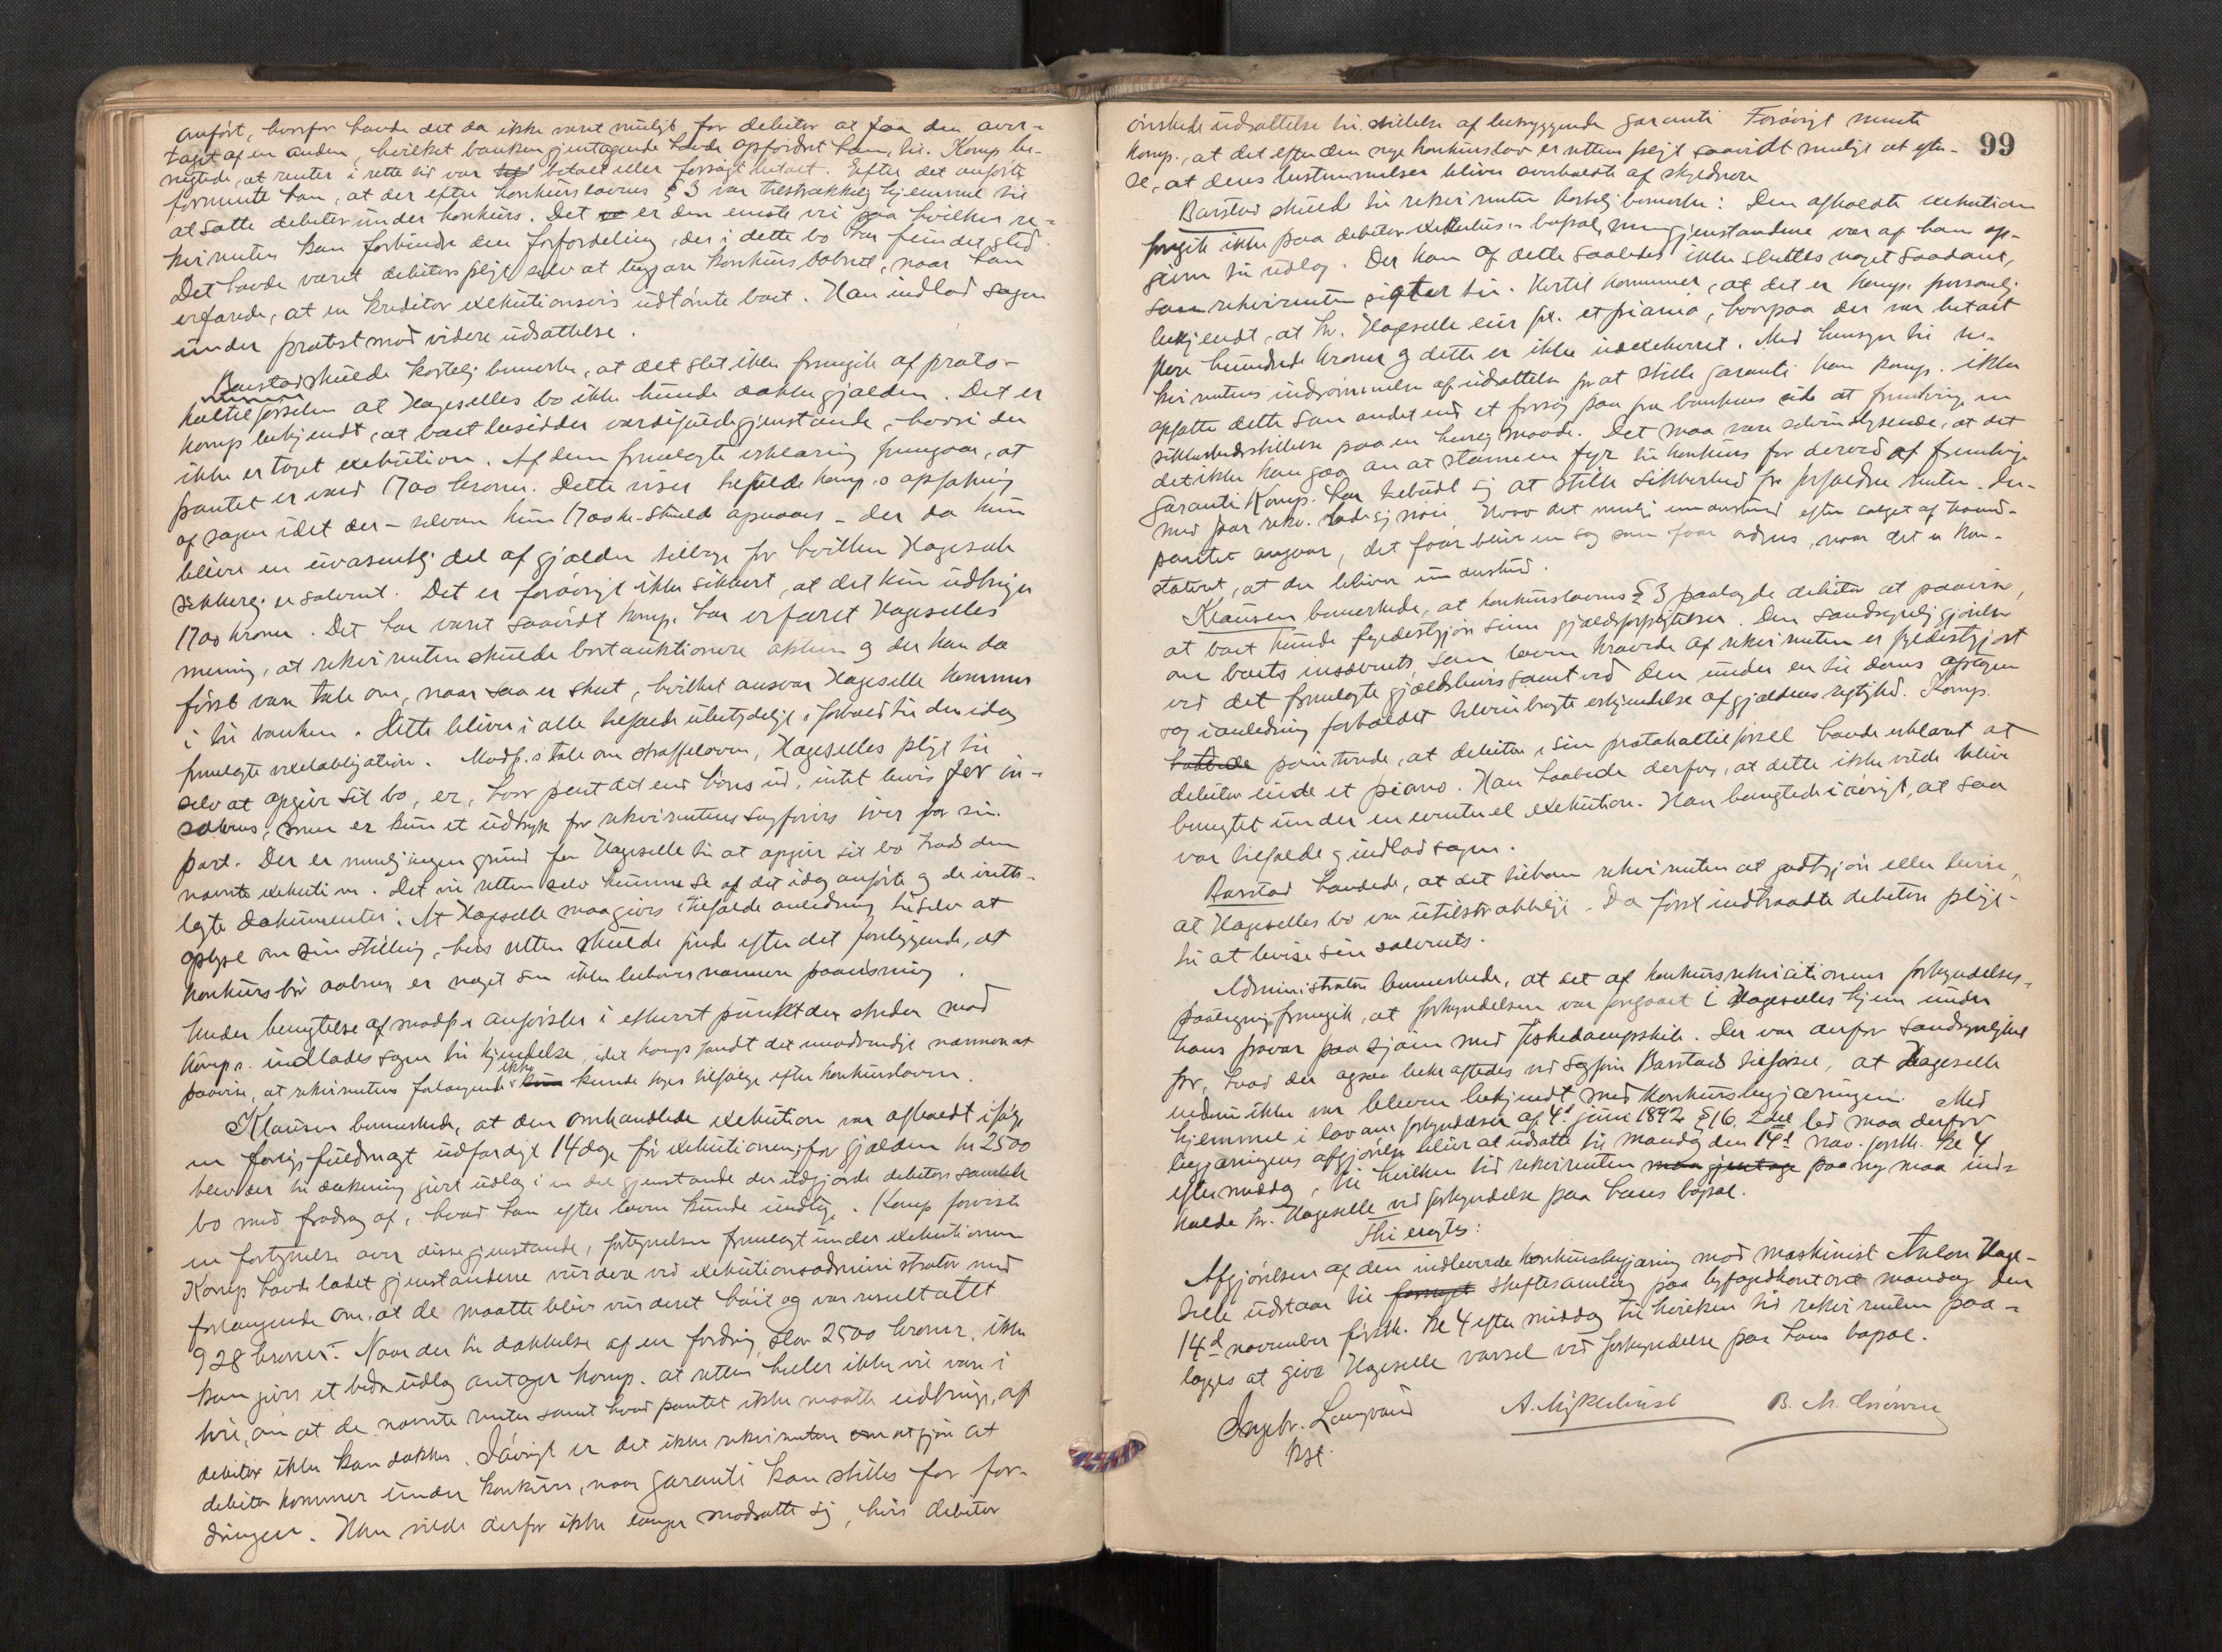 anført, hvorfor havde det da ikke været muligt for debitor at faa den over-
taget af en anden, hvilket banken gjentagende havde opfordret ham til. Komp be-
negtede, at renter i rette tid var betalt eller forsøgt betalt. Efter det anførte
formente han, at der efter konkurslovens § 3 var tilstrækkelig hjemmel til
at sætte debitor under konkurs. Det er den eneste vei paa hvilken re-
kvirenten kan forhindre den forfordeling, der i dette bo har fundet sted.
Det havde været debitors pligt selv at begjære konkurs aabnet, naar han
erfarede, at en kreditor exekutionsvis udtømte boet. Han indlod sagen
under protest mod videre udsættelse.
Barstad skulde kortelig bemerke, at det slet ikke fremgik af proto-
koltilførselen at Hageselles bo ikke kunde dække gjælden. Det er
komp bekjendt, at boet besidder værdifulde gjenstande, hvori der
ikke er taget exekution. Af den fremlagte erklæring fremgaar, at
pantet er værd 1700 kroner. Dette viser tilfulde komp.s opfatning
af sagen idet der – selvom kun 1700 kr. skuld opnaaes – der da kun
bliver en uvæsentlig del af gjælden tilbage for hvilken Hageselle
sikkerlig er solvent. Det er forøvrigt ikke sikkert, at det kun udbringes
1700 kroner. Det har været saavidt komp. har erfaret Hageselles
mening, at rekvirenten skulde bortauktionere aktien og der kan da
først være tale om, naar saa er skeet, hvilket ansvar Hageselle kommer
i til banken. Dette bliver i alle tilfælde ubetydelige i forhold til den idag
fremlagte vexelobligation. Modp.s tale om straffeloven, Hageselles pligt til
selv at opgive sit bo, er, hvor pent det end høres ud, intet bevis for in-
solvens, men er kun et udtryk for rekvirentens sagførers iver for sin
part. Der er nemlig ingen grund for Hageselle til at opgive sit bo trods den
nævnte exekution. Det vil retten selv kunne se af det idag anførte og de irette-
lagte dokumenter. At Hageselle maa gives i tilfælde anledning til selv at
oplyse om sin stilling, hvis retten skulde finde efter det foreliggende, at
konkurs bør aabnes, er noget som ikke behøver nærmere paavisning.
Under benegtelse af modp.s anførsler i ethvert punkt der strider mod
komp.s indlodes sagen til kjendelse, idet komp fandt det unødvendigt nærmere at
paavise, at rekvirentens forlangende ikke kunde tages tilfølge efter konkursloven.
Klausen bemerkede, at den omhandlede exekution var afholdt ifølge
en forligsfuldmagt udfærdiget 14 dage før exekutionen; for gjælden kr 2500
blev der til dækning givet udlæg i en del gjenstande der udgjorde debitors samtlede
bo med fradrag af, hvad han efter loven kunde undtage. Komp foreviste
en fortegnelse over disse gjenstande, fortegnelsen fremlagt under exekutionen
Komp havde ladet gjenstandene vurdere ved exekutionsadministrator med
forlangende om, at de maatte blive vurderet høit og var resultatet
928 kroner. Naar der til dækkelse af en fordring, stor 2500 kroner, ikke
kan gives et bedre udlæg antager komp. at retten heller ikke vil være i
tvil om at de nævnte renter samt hvad pantet ikke maatte udbringe, af
debitor ikke kan dækkes. Iøvrigt er det ikke rekvirenten om at gjøre at
debitor kommer under konkurs, naar garanti kan stilles for for-
dringen. Han vilde derfor ikke længer modsætte sig, hvis debitor
99
ønskede udsættelse til stillelse af betryggende garanti Forøvrigt mente
komp., at det efter den nye konkurslov er rettens pligt saavidt muligt at efter-
se, at dens bestemmelser bliver overholdte af skyldnere
Barstad skulde til rekvirenten kortelig bemerke: Den afholdte exekution
foregik ikke paa debitor bopæl, men gjenstandene var af ham op-
givne til udlæg. Der kan af dette saaledes ikke sluttes noget saadant,
som rekvirenten sigter til. Hertil kommer, at det er komp. personlig
bekjendt, at hr. Hageselle eier fx. et piano, hvorpaa der var betalt
flere hundrede kroner og dette er ikke udexekveret. Med hensyn til re-
kvirentens indrømmelse af udsættelse for at stille garanti kan komp. ikke
opfatte dette som andet end et forsøg paa fra bankens side at fremtvinge en
sikkerhedsstillelse paa en heureg maade. Det maa være selvindlysende, at det
det ikke kan gaa an at stævne en fyr til konkurs for derved at fremtvinge
garanti. Komp. har tilbudt sig at stille sikkerhed for forfaldne renter. Der-
med par rekv. lade sig nøie. Hvad det mulig underskud efter salget af haand-
pantet angaar, det faar blive en sag som faar ordnes, naar det er kon-
stateret, at der bliver underskud.
Klausen bemerkede, at konkurslovens § 3 paalagde debitor at paavise,
at boet kunde fyldestgjøre sine gjældsforpligtelser. Den sandsynliggjørelse
om boets insolvents som loven krævede af rekvirenten er fyldestgjort
ved det fremlagte gjældsbevis samt ved den under en til doms optagen
sag i anledning forholdet tilveiebragte erkjendelse af gjældens rigtighed. Komp.
pointerede, at debitor i sin protokoltilførsel havde erklæret at
debitor eiede et piano. Han haabede derfor, at dette ikke vilde blive
benegtet under en eventuel exekution. Han benegtede iøvrigt, at saa
var tilfælde og indlod sagen.
Barstad hævdede, at det tilkom rekvirenten at godtgjøre eller bevise,
at Hageselles bo var utilstrækkelig. Da først indtraadte debitors pligt
til at bevise sin solvents.
Administrator bemerkede, at det af konkursrekvisitionens forkyndelses-
paategning fremgik, at forkyndelsen var foregaaet i Hageselles hjem under
hans fravær paa sjøen med fiskedampskib. Der var derfor sandsynlighed
for, hvad der ogsaa bekræftedes ved sagfører Barstads tilførsel, at Hageselle
endnu ikke var bleven bekjendt med konkursbegjæringen. Med
hjemmel i lov om forkyndelser af 4d juni 1892 § 16, 2det led maa derfor
begjæringens afgjørelse blive at udsætte til mandag den 14d nov. førstk. kl 4
eftermiddag, til hvilken tid rekvirenten paa ny maa ind-
kalde hr. Hageselle ved forkyndelse paa hans bopæl.
Thi eragtes:
Afgjørelsen af den indleverede konkursbegjæring mod maskinist Anton Hage-
selle udstaar til skiftesamling paa byfogedkontoret mandag den
14d november førstk. kl 4 eftermiddag til hvilken tid rekvirenten paa-
lægges at give Hageselle varsel ved forkyndelse paa hans bopæl.
Ingebr. Langvand
kst.
A. Myklebust